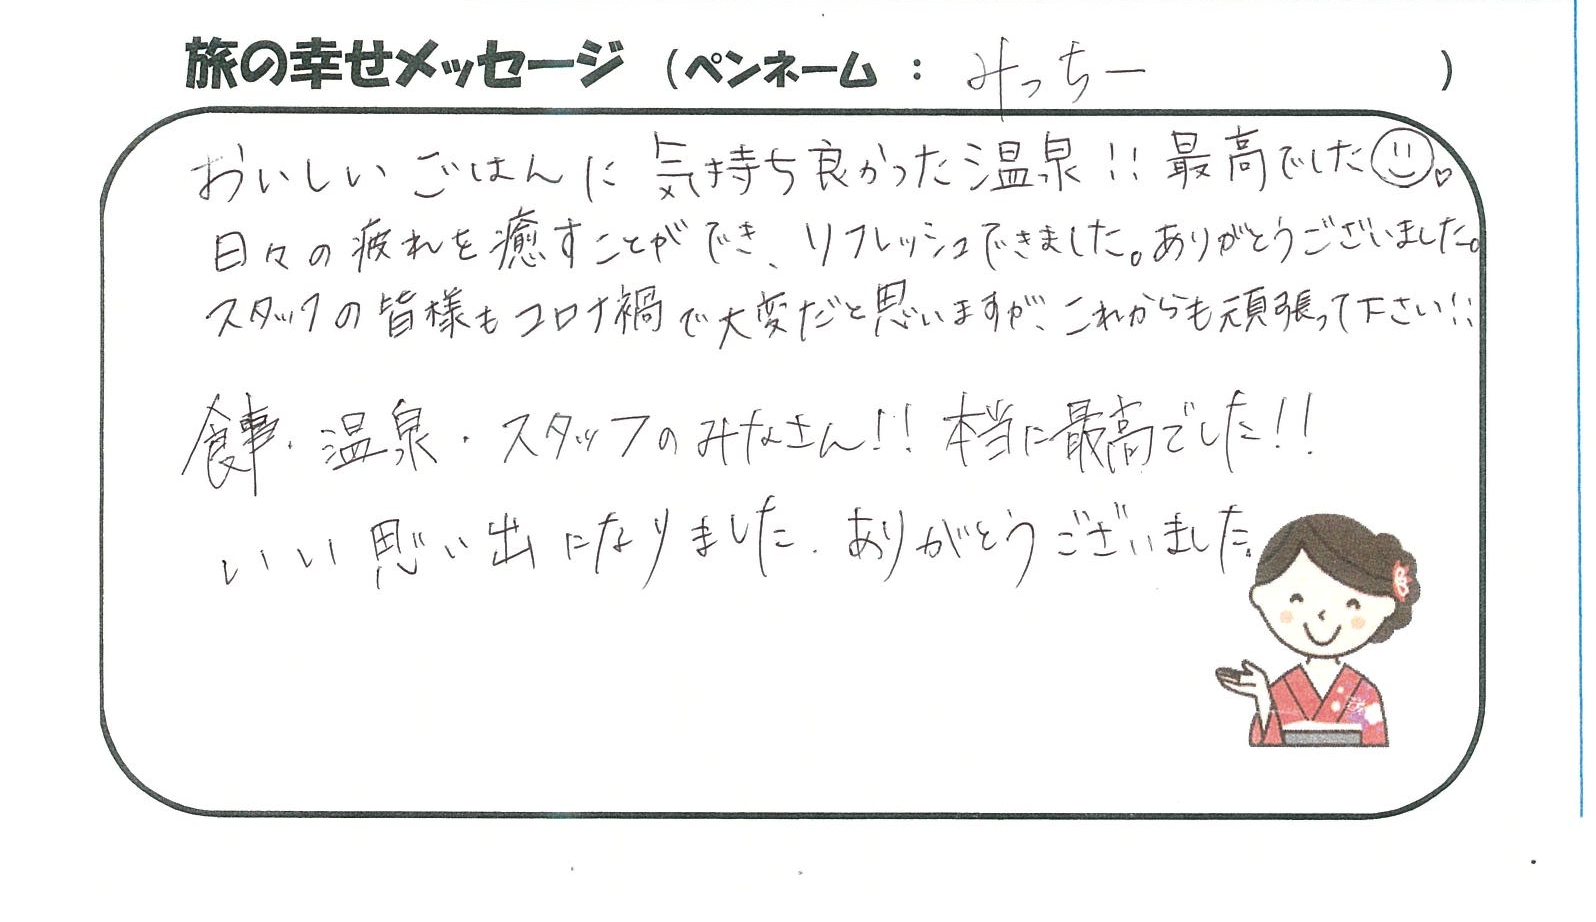 旅の幸せメッセージ (ペンネーム : みっちー )
おいしい ごはんに 気持ち良かった温泉!! 最高でした
日々の疲れを癒すことができ、リフレッシュできました。ありがとうございました。
スタッフの皆様もコロナ禍で大変だと思いますが、これからも頑張って下さい!!
食事・温泉・スタッフのみなさん!! 本当に最高でした!!
いい思い出になりました。ありがとうございました。